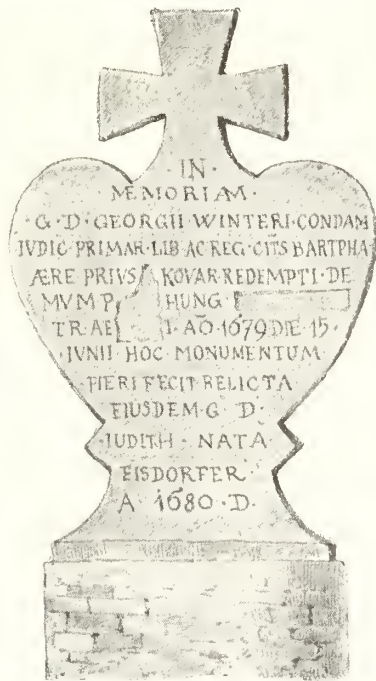 ·IN·
MEMORIAM·
·G·D·GEORGII·WINTERI·CONDAM
IVDIC·PRIMAR·LIB·AC·REG·CITS·BARTPHA
ÆRE PRIVS KOVAR·REDEMPTI·DE
MVM P HUNG·
TRAE I·AÕ·1679 DIE·15·
·IVNII·HOC·MONUMENTUM·
FIERI FECIT·RELICTA
EIUSDEM·G·D·
·IUDITH·NATA
EISDORFER
A·1680·D·